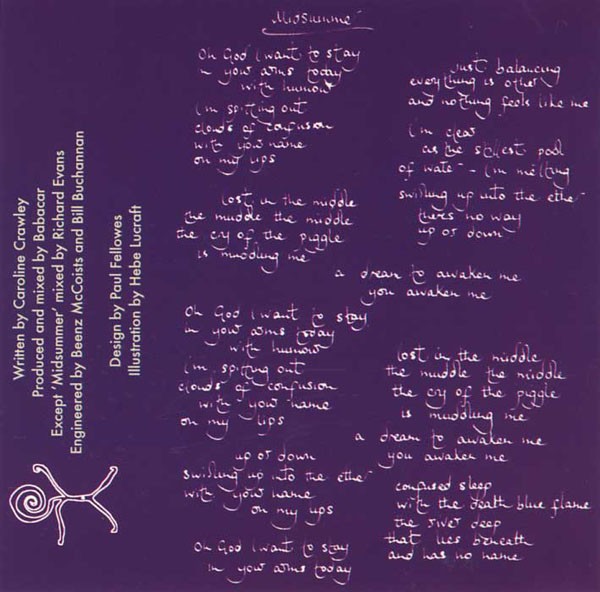 Midsummer
Oh God I want to stay
in your arms today
with humour
I'm spitting out
clouds of confusion
with your name
on my lips
lost in the middle
the muddle the middle
the cry of the piggle
is muddling me
Oh God I want to stay
in your arms today
with humour
I'm spitting out
clouds of confusion
with your name
on my lips
up or down
swirling up into the ether
with your name
on my lips
Oh God I want to stay
in your arms today
just balancing
everything is other
and nothing feels like me
I'm clear
as the stillest pool
of water - I'm melting
swirling up into the ether
theres no way
up or down
a dream to awaken me
you awaken me
lost in the middle
the muddle the middle
the cry of the piggle
is muddling me
a dream to awaken me
you awaken me
confused sleep
with the death blue flame
the river deep
that lies beneath
and has no name
Written by Caroline Crawley
Produced and mixed by Babacar
Except 'Midsummer' mixed by Richard Evans
Engineered by Beenz McCoists and Bill Buchannan
Design by Paul Fellowes
Illustration by Hebe Lucraft